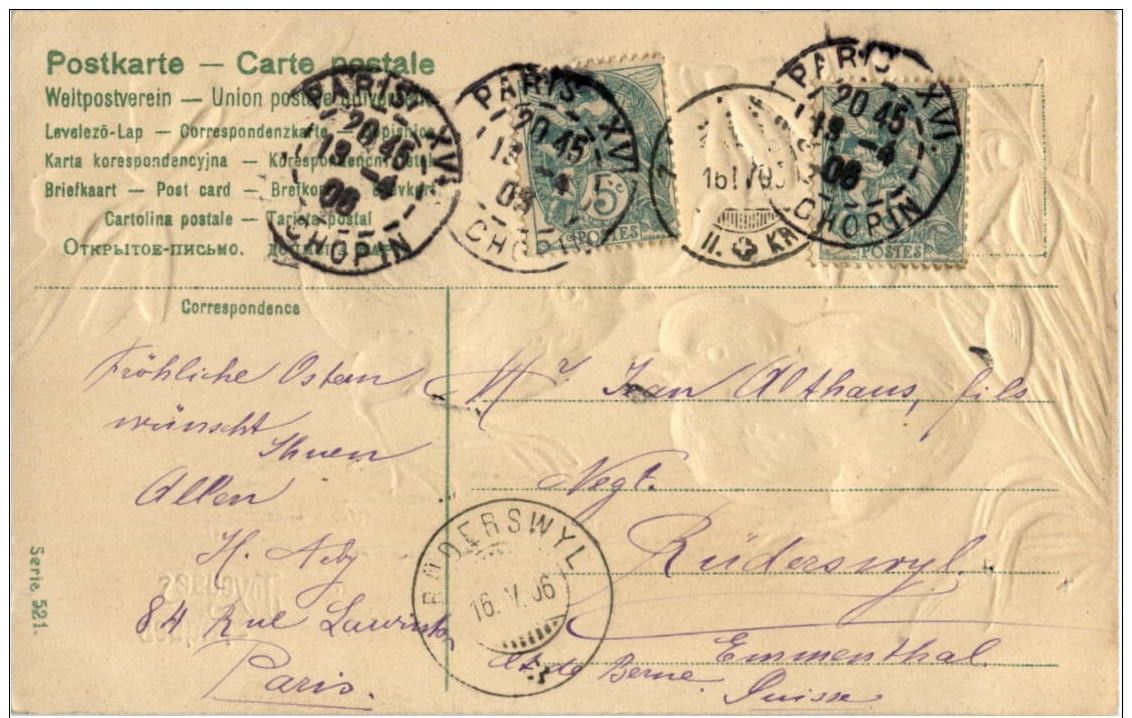 Postkarte — Carte postale
Weltpostverein — Union postale universelle
Levelező-Lap — Correspondenzkarte — Dopisnice
Karta korespondencyjna — Korespondenční lístek
Briefkaart — Post card — Brefkort — Brevkort
Cartolina postale — Tarjeta postal
Открытое-письмо.
PARIS XVI.
20 45
19 -4
06
CHOPIN
PARIS XVI
20 45
-4
CHOPIN
5c
POSTES
II. KR
PARIS XVI.
20 45
19 -4
06
CHOPIN
POSTES
Correspondence
Fröhliche Ostern
wünscht
Ihnen
Allen
H. Aeby
84 Rue Lauriston
Paris.
Mr. Jean Althaus, fils
Negt.
Rüderswyl.
Emmenthal
Ct. de Berne.
Suisse
RÜDERSWYL
16. V. 06
Serie 521.
Joyeuses
Pâques